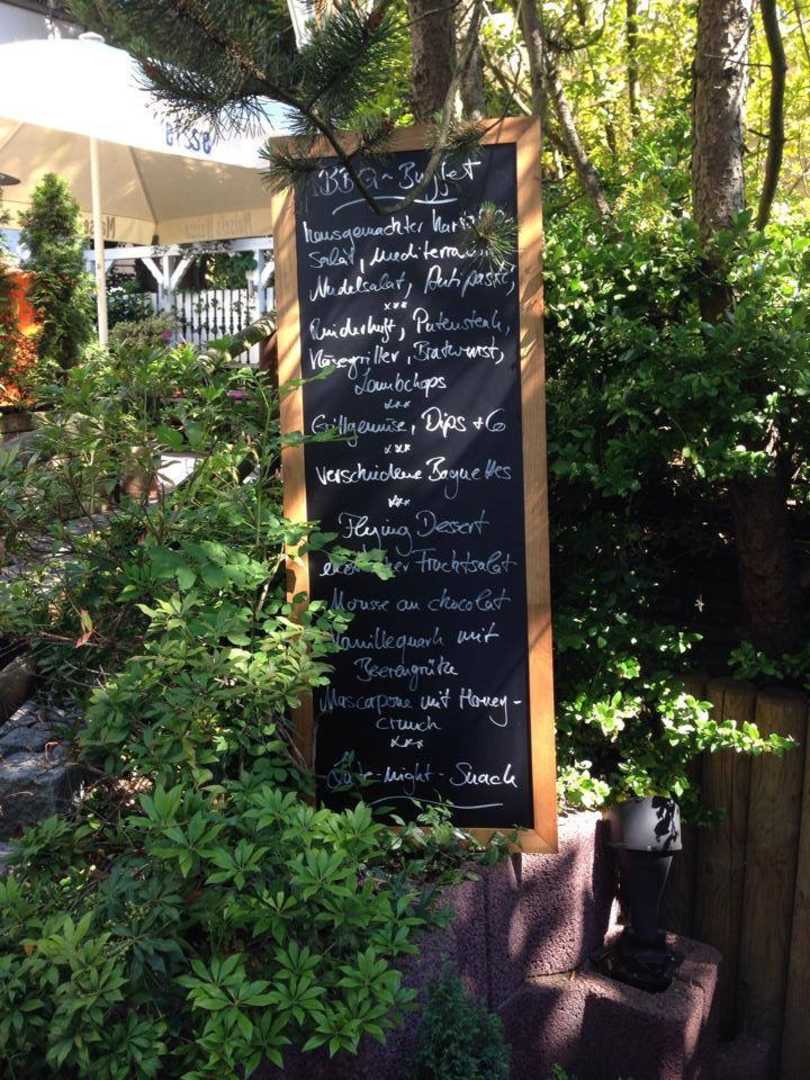 BBQ-Buffet
hausgemachter
Salat, mediterraner
Nudelsalat, Antipasti,
***
Rinderhüft, Putensteak,
Käsegriller, Bratwurst,
Lambchops
***
Grillgemüse, Dips + Co
***
verschiedene Baguettes
***
Flying Dessert
exotischer Fruchtsalat
Mousse au chocolat
Vanillequark mit
Beerengrütze
Mascarpone mit Honey-
crunch
***
Late-Night-Snack